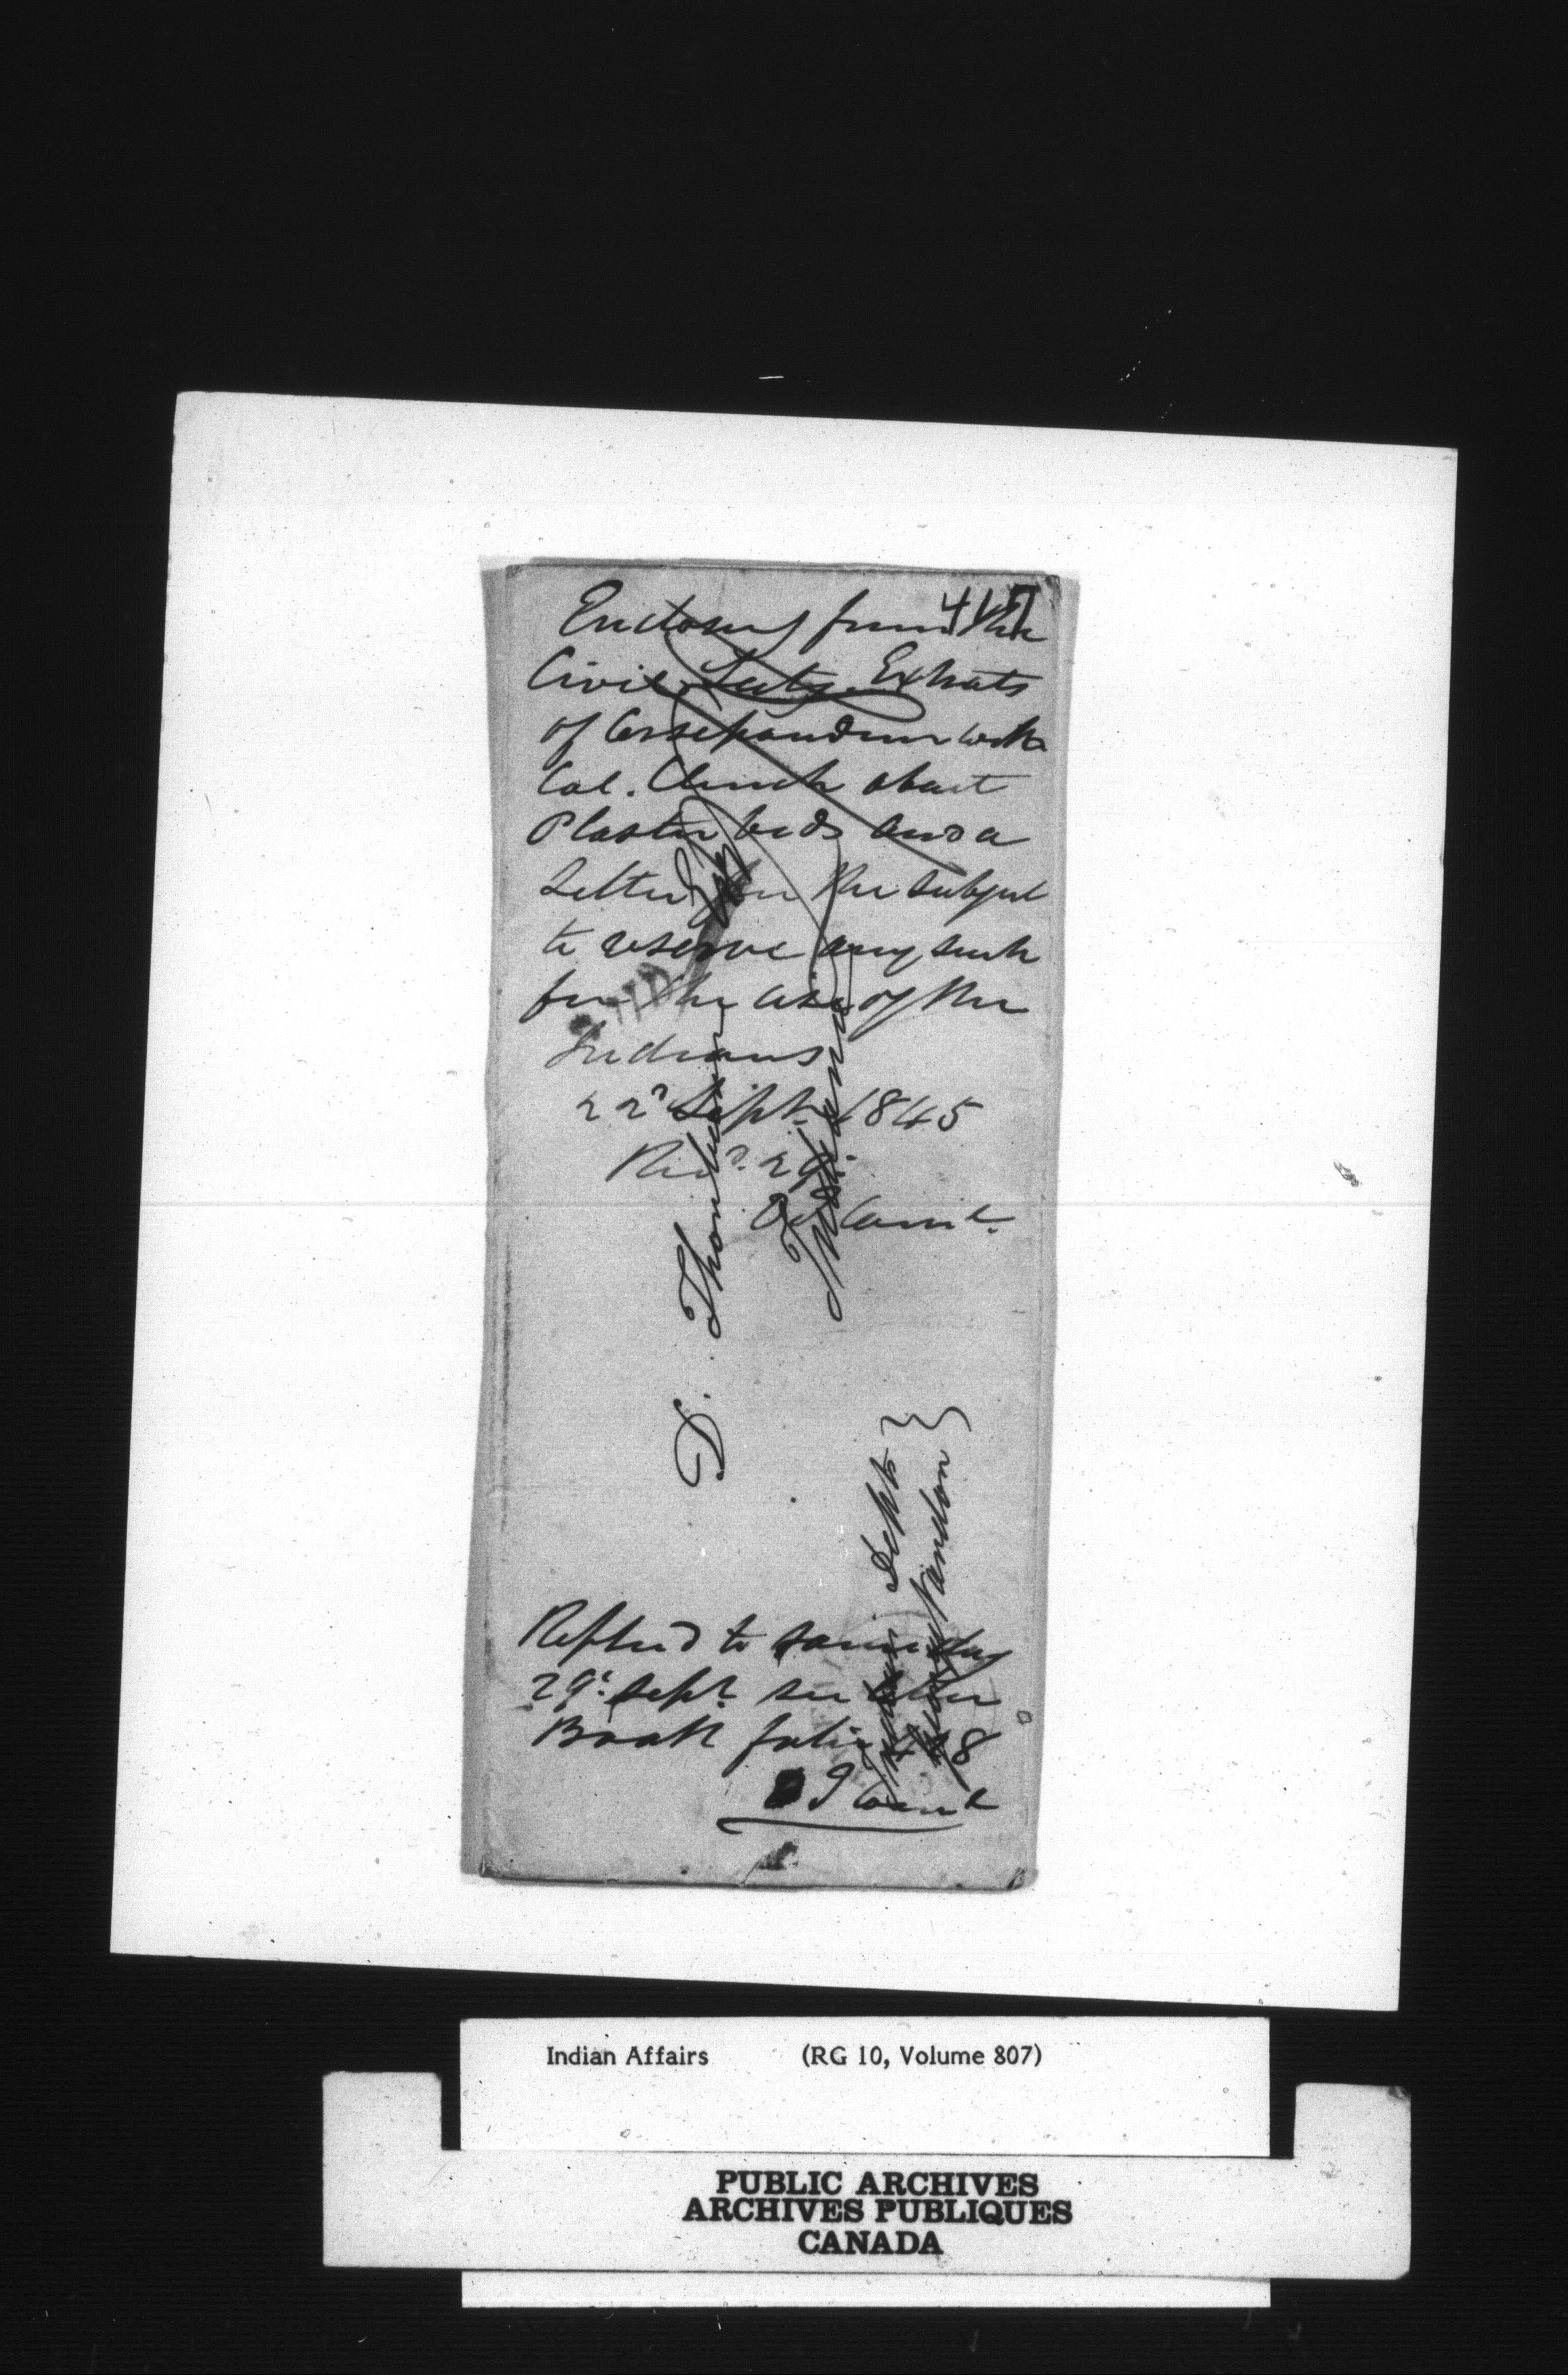 417
Enclosing from the
Civil Secty. Extrats
of Corsepondence with
Col. Clench about
Plaster beds and a
Letter on the subject
to reserve any such
for the use of the
Indians
22d Sept. 1845
Recd. 29t.
Comt.
D. Thorburn Esq
Indiana
Indian Dept
Nandon
Refered to same day
29t. Sept. see letter
Book folio 8
Comt
Indian Affairs (RG 10, Volume 807)
PUBLIC ARCHIVES
ARCHIVES PUBLIQUES
CANADA